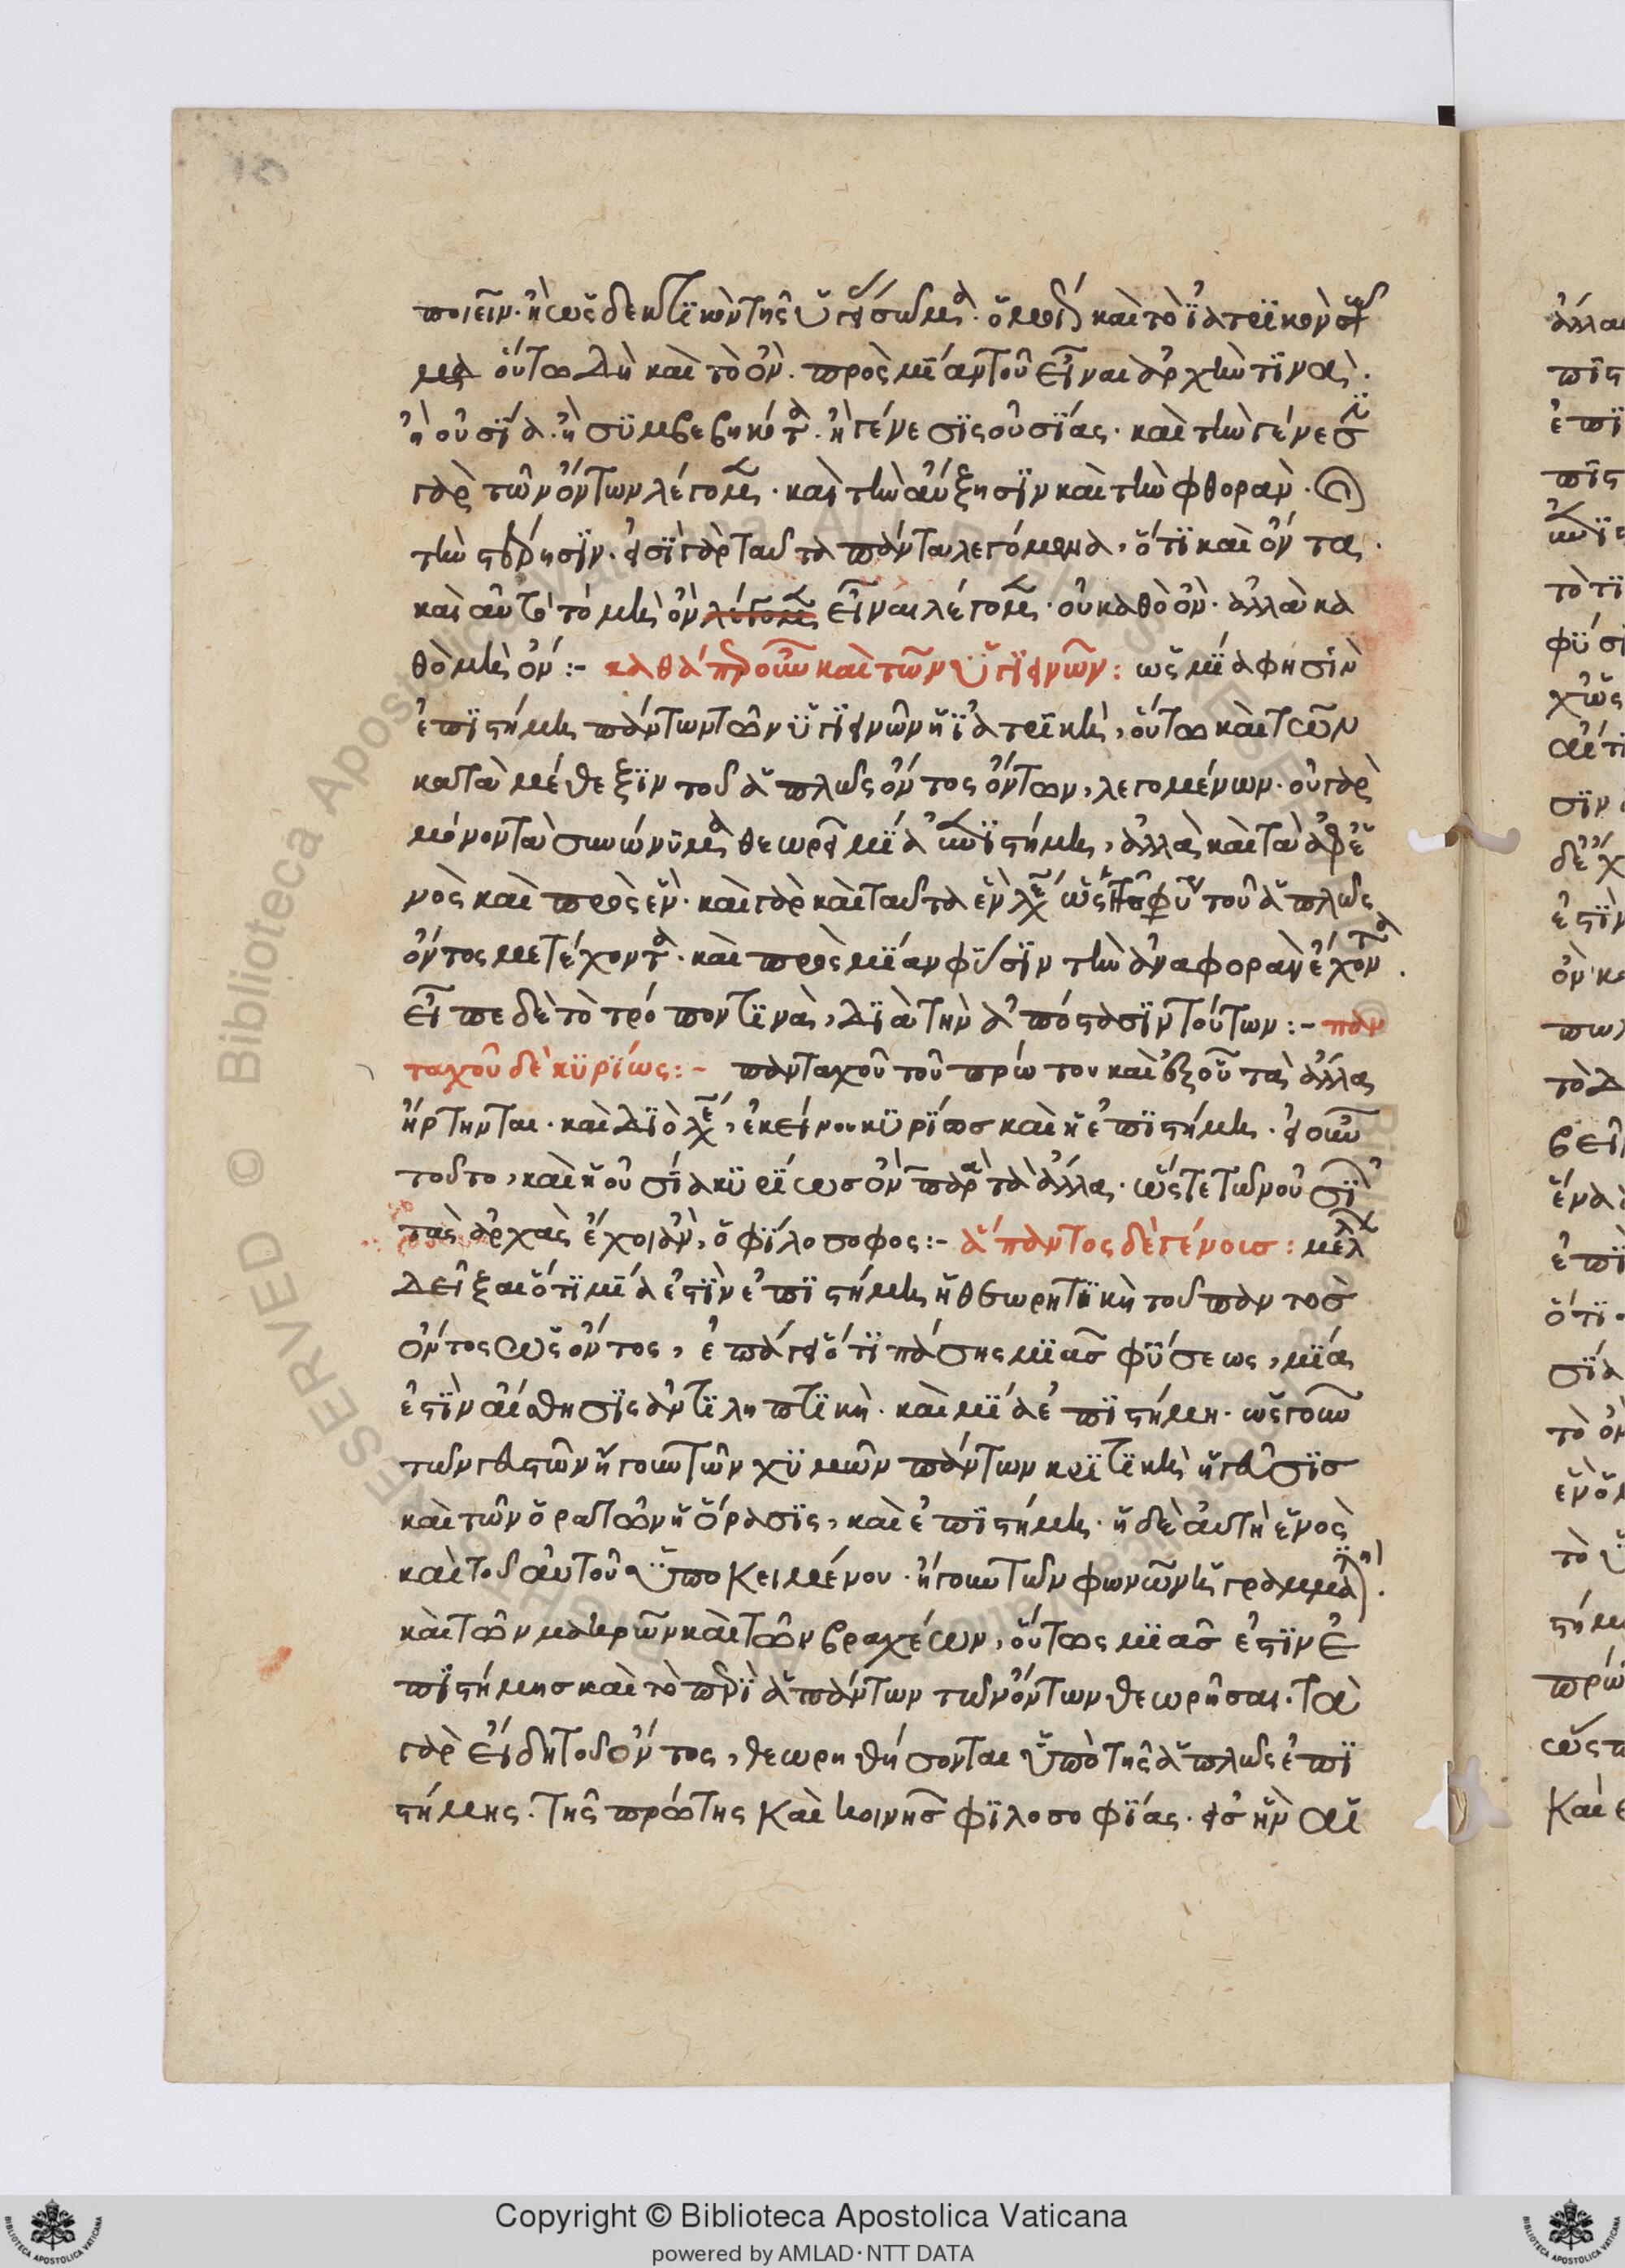 ποιεῖν. ἢ ὡς δεκτικὸν τῆς ὑγείας σῶμα. ὁμοίως καὶ τὸ ἰατρικὸν
οὕτω δὴ καὶ τὸ ὄν. πρὸς μίαν τοῦ εἶναι ἀρχήν τινας.
ἢ οὐσία. ἢ συμβεβηκότα. ἢ γένεσις οὐσίας. καὶ τὴν γένεσιν
γὰρ τῶν ὄντων λέγομεν. καὶ τὴν αὔξησιν καὶ τὴν φθοράν. καὶ
τὴν στέρησιν. εἰσὶ γὰρ ταῦτα πάντα λεγόμενα, ὅτι καὶ ὄντα.
καὶ αὐτὸ τὸ μὴ ὂν λέγομεν εἶναι λέγομεν. οὐ καθὸ ὄν. ἀλλὰ κα
θὸ μὴ ὄν :- καθάπερ οὖν καὶ τῶν ὑγιεινῶν : ὡς μία φησὶν
ἐπιστήμη πάντων τῶν ὑγιεινῶν ἡ ἰατρικὴ, οὕτω καὶ τῶν
κατὰ μέθεξιν τοῦ ἁπλῶς ὄντος ὄντων, λεγομένων. οὐ γὰρ
μόνον τὰ συνώνυμα θεωρεῖ μία ἐπιστήμη, ἀλλὰ καὶ τὰ ἀφ' ἑ
νὸς καὶ πρὸς ἕν. καὶ γὰρ καὶ ταῦτα ἓν λέγεται ὡς τῆς φύσεως τοῦ ἁπλῶς
ὄντος μετέχοντα. καὶ πρὸς μίαν φύσιν τὴν ἀναφορὰν ἔχοντα.
εἶπε δὲ τὸ τρόπον τινὰ, διὰ τὴν ἀπόστασιν τούτων :- παν
ταχοῦ δὲ κυρίως :- πανταχοῦ τοῦ πρώτου καὶ ἐξ οὗ τὰ ἄλλα
ἤρτηνται. καὶ διὸ λέγεται, ἐκείνου κυρίως καὶ ἡ ἐπιστήμη. εἰ οὖν
τοῦτο, καὶ ἡ οὐσία κυρίως ὂν παρὰ τὰ ἄλλα. ὥστε τῶν οὐσιῶν
τὰς ἀρχὰς ἔχοι ἂν, ὁ φιλόσοφος :- ἅπαντος δὲ γένους : μέλλων
δεῖξαι ὅτι μία ἐστὶν ἐπιστήμη ἡ θεωρητικὴ τοῦ παντὸς
ὄντος ὡς ὄντος, ἐπάγει ὅτι πάσης μιᾶς φύσεως, μία
ἐστὶν αἴσθησις ἀντιληπτικὴ. καὶ μία ἐπιστήμη. ὡς γοῦν
τῶν γευστῶν ἤγουν τῶν χυμῶν πάντων κριτικὴ ἡ γεῦσις
καὶ τῶν ὁρατῶν ἡ ὅρασις, καὶ ἐπιστήμη. ἡ δὲ αὐτὴ ἑνὸς
καὶ τοῦ αὐτοῦ ὑποκειμένου. ἤγουν τῶν φωνῶν ἡ γραμματική.
καὶ τῶν μακρῶν καὶ τῶν βραχέων, οὕτως μιᾶς ἐστὶν ἐ
πιστήμης καὶ τὸ περὶ ἁπάντων τῶν ὄντων θεωρῆσαι. τὰ
γὰρ εἴδη τοῦ ὄντος, θεωρηθήσονται ὑπὸ τῆς ἁπλῶς ἐπι
στήμης. τῆς πρώτης καὶ κοινῆς φιλοσοφίας. εἰς ἣν αἱ
Copyright © Biblioteca Apostolica Vaticana
powered by AMLAD · NTT DATA